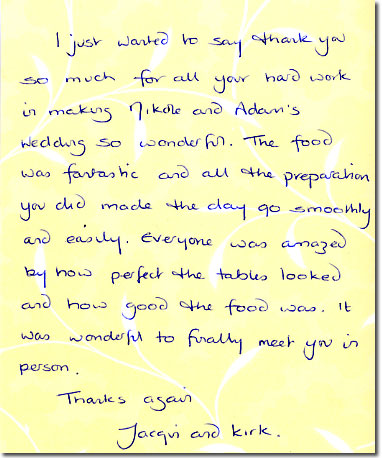 I just wanted to say thank you
so much for all your hard work
in making Nikole and Adam's
wedding so wonderful. The food
was fantastic and all the preparation
you did made the day go smoothly
and easily. Everyone was amazed
by how perfect the tables looked
and how good the food was. It
was wonderful to finally meet you in
person.
Thanks again
Jacqui and Kirk.